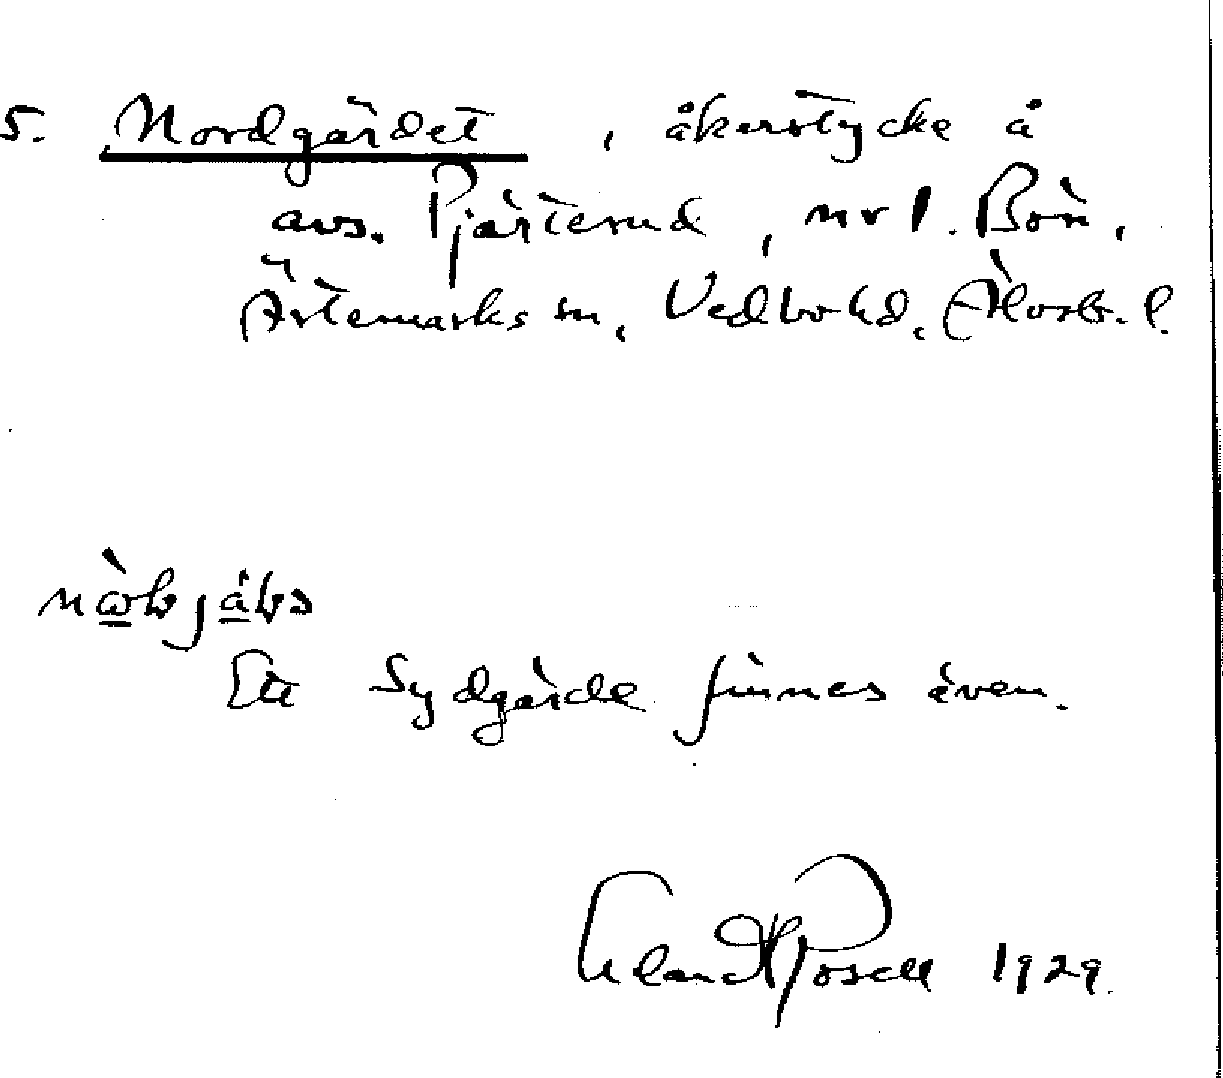 5. Nordgärdet, åkerstycke å
avs. Pjärterud, nr 1. Bön,
Ärtemarks sn, Vedbo hd, Älvsb. l.
Ett Sydgärde finnes även.
Erland Rosell 1929.